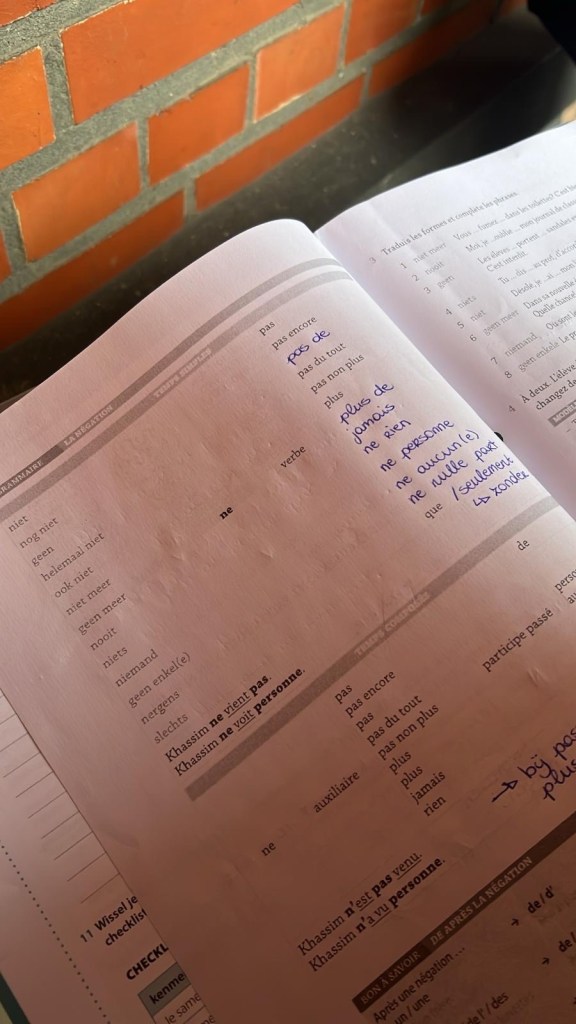 GRAMMAIRE LA NÉGATION
TEMPS SIMPLES
niet
nog niet
geen
helemaal niet
ook niet
niet meer
geen meer
nooit
niets
niemand
geen enkel(e)
nergens
slechts
ne
verbe
pas
pas encore
pas de
pas du tout
pas non plus
plus
plus de
jamais
ne rien
ne personne
ne aucun(e)
ne nulle part
que /seulement
↳ zonder
Khassim ne vient pas.
Khassim ne voit personne.
TEMPS COMPOSÉS
ne
auxiliaire
pas
pas encore
pas
pas du tout
pas non plus
plus
plus
jamais
rien
participe passé
de
→ bij pas
plus
Khassim n'est pas venu.
Khassim n'a vu personne.
BON À SAVOIR DE APRÈS LA NÉGATION
Après une négation ...
un / une
→ de / d'
→ de /
11 Wissel je
CHECKL
kenme
le same
3 Traduis les formes et complète les phrases.
1 niet meer
2 nooit
3 geen
4 niets
5 niet
6 geen meer
7 niemand
8 geen enkele
Vous ... fumez ... dans les toilettes? C'est
Moi, je ..oublie... mon journal de
Les élèves ... portent ...
C'est interdit.
Tu ...dis ... au prof, d'acco
Désolé, je ...ai ... mon
Dans sa nouvelle
Quelle chance
4 À deux. L'élève
changez de